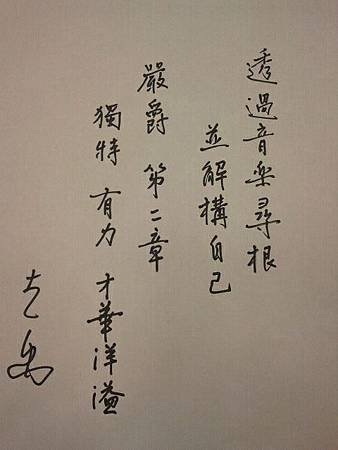 透過音樂尋根
並解構自己
嚴爵 第二章
獨特 有力 才華洋溢